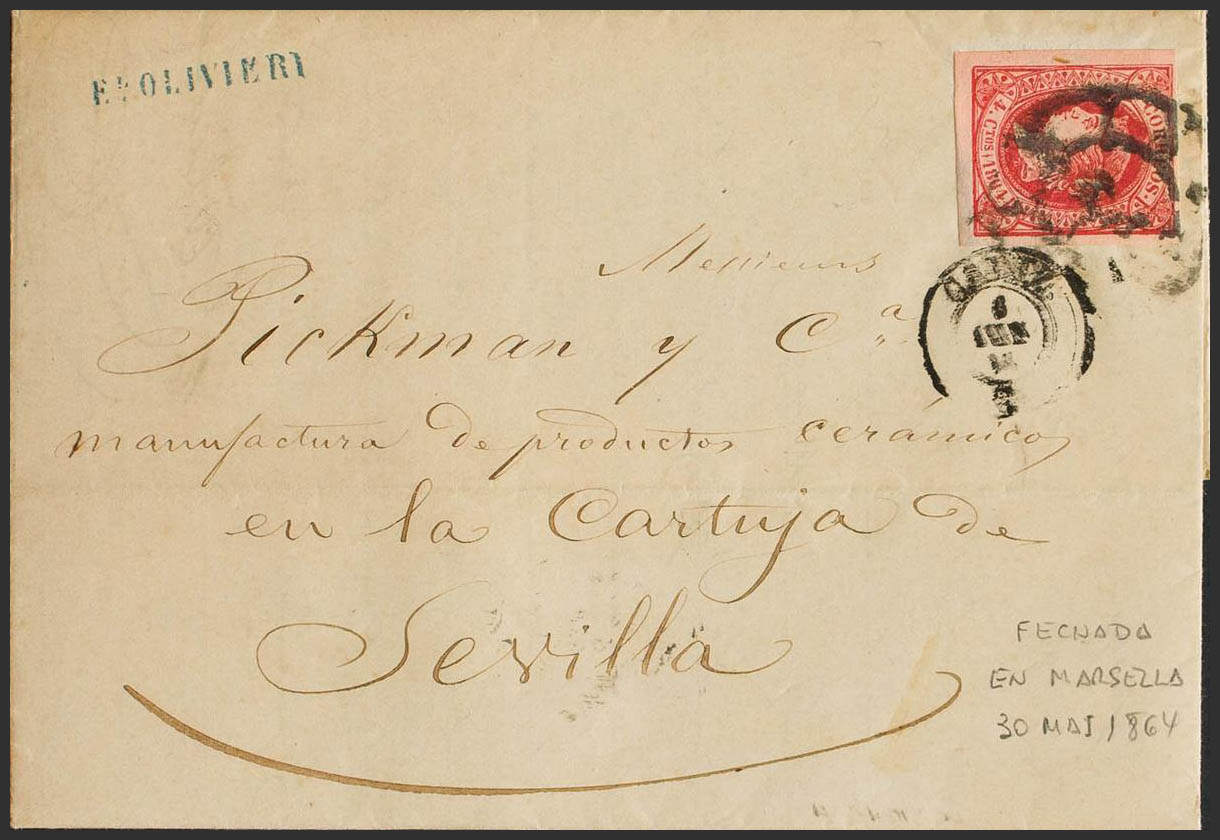 OLIVIERI
4 CTOS
1864
CORREOS
Messieurs
Pickman y Cª
manufactura de productos cerámicos
en la Cartuja de
Sevilla
CADIZ
JUN
FECHADA
EN MARSELLA
30 MAI 1864